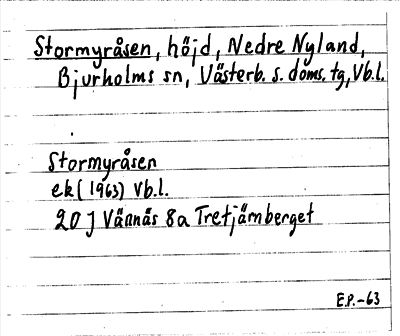 Stormyråsen, höjd, Nedre Nyland,
Bjurholms sn, Västerb. s. doms. tg, Vb.l.
Stormyråsen
ek (1963) Vb.l.
20 J Vännäs 8a Tretjärnberget
E.P.-63